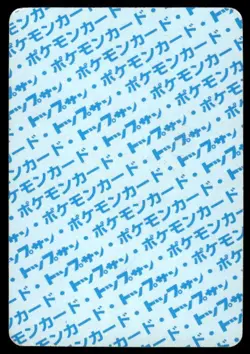 トップサン・ポケモンカード
ポケモンカード・トップサン・
トップサン・ポケモンカード・
ポケモンカード・トップサン・
トップサン・ポケモンカード・
ポケモンカード・トップサン・
トップサン・ポケモンカード・
ポケモンカード・トップサン・
トップサン・ポケモンカード・
ポケモンカード・トップサン・
トップサン・ポケモンカード・
ポケモンカード・トップサン